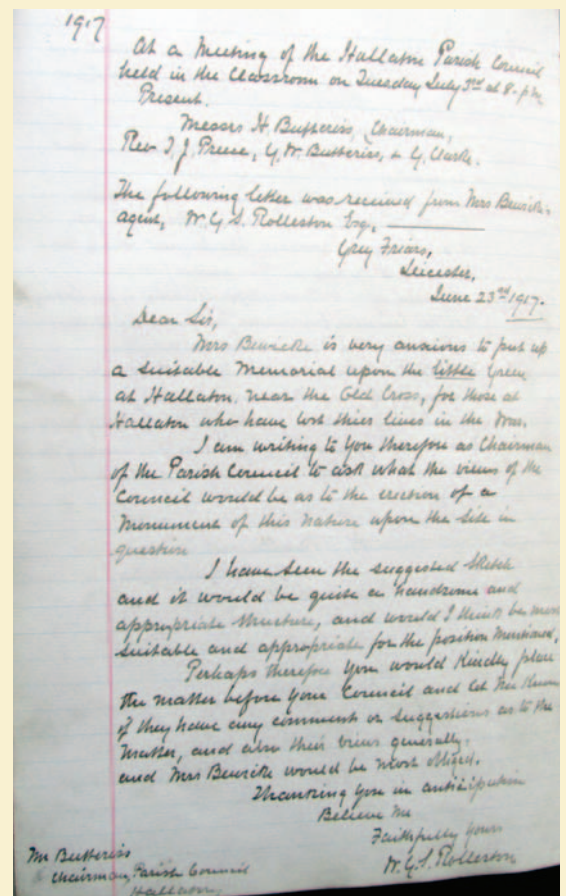 1917
At a Meeting of the Hallaton Parish Council
held in the Classroom on Tuesday July 3rd at 8. p.m.
Present.
Messrs H. Butteriss, Chairman,
Rev T. J. Preese, G. W. Butteriss, & G. Clarke.
The following letter was received from Mrs Bewicke's
agent, W. G. S. Rolleston Esq,
Grey Friars,
Leicester,
June 23rd 1917.
Dear Sir,
Mrs Bewicke is very anxious to put up
a suitable Memorial upon the little Green
at Hallaton, near the Old Cross, for those at
Hallaton who have lost thier lives in the War.
I am writing to you therefore as Chairman
of the Parish Council to ask what the views of the
Council would be as to the erection of a
Monument of this nature upon the site in
question
I have seen the suggested Sketch
and it would be quite a handsome and
appropriate structure, and would I think be most
suitable and appropriate for the position mentioned,
Perhaps therefore you would kindly place
the matter before your Council and let me know
if they have any comment or suggestions as to the
matter, and also their views generally.
and Mrs Bewicke would be most obliged.
Thanking you in anticipation
Believe me
Faithfully yours
W. G. S. Rolleston
Mr Butteriss
Chairman, Parish Council
Hallaton,